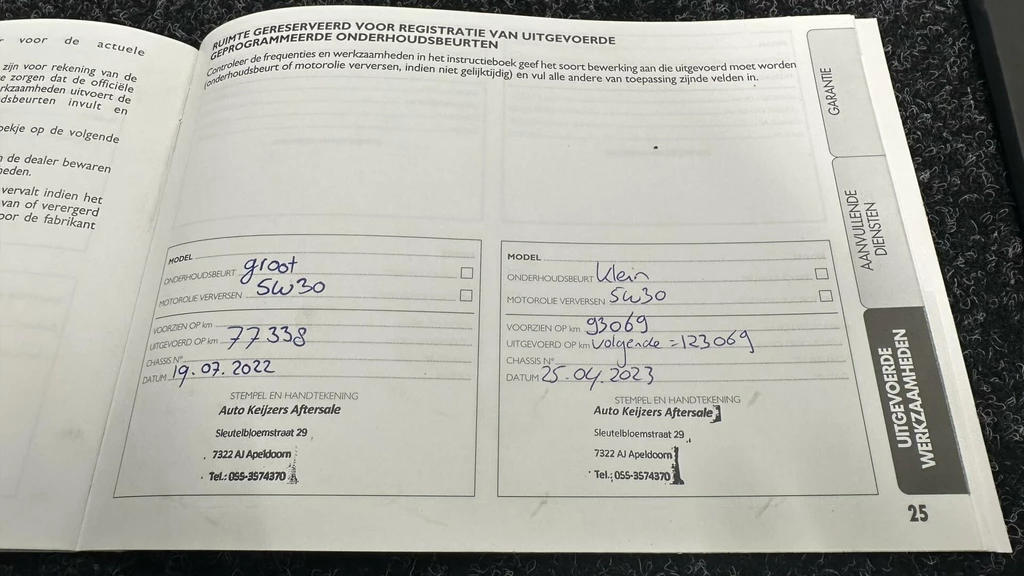 voor de actuele
zijn voor rekening van de
zorgen dat de officiële
rkzaamheden uitvoert de
dsbeurten invult en
oekje op de volgende
de dealer bewaren
heden.
vervalt indien het
van of verergerd
oor de fabrikant
RUIMTE GERESERVEERD VOOR REGISTRATIE VAN UITGEVOERDE
GEPROGRAMMEERDE ONDERHOUDSBEURTEN
Controleer de frequenties en werkzaamheden in het instructieboek geef het soort bewerking aan die uitgevoerd moet worden
(onderhoudsbeurt of motorolie verversen, indien niet gelijktijdig) en vul alle andere van toepassing zijnde velden in.
MODEL
ONDERHOUDSBEURT groot
MOTOROLIE VERVERSEN 5W30
VOORZIEN OP km
UITGEVOERD OP km 77338
CHASSIS N°
DATUM 19.07.2022
STEMPEL EN HANDTEKENING
Auto Keijzers Aftersale
Sleutelbloemstraat 29
7322 AJ Apeldoorn
Tel.: 055-3574370
MODEL
ONDERHOUDSBEURT Klein
MOTOROLIE VERVERSEN 5W30
VOORZIEN OP km 93069
UITGEVOERD OP km Volgende = 123069
CHASSIS N°
DATUM 25.04.2023
STEMPEL EN HANDTEKENING
Auto Keijzers Aftersale
Sleutelbloemstraat 29
7322 AJ Apeldoorn
Tel.: 055-3574370
GARANTIE
AANVULLENDE
DIENSTEN
UITGEVOERDE
WERKZAAMHEDEN
25